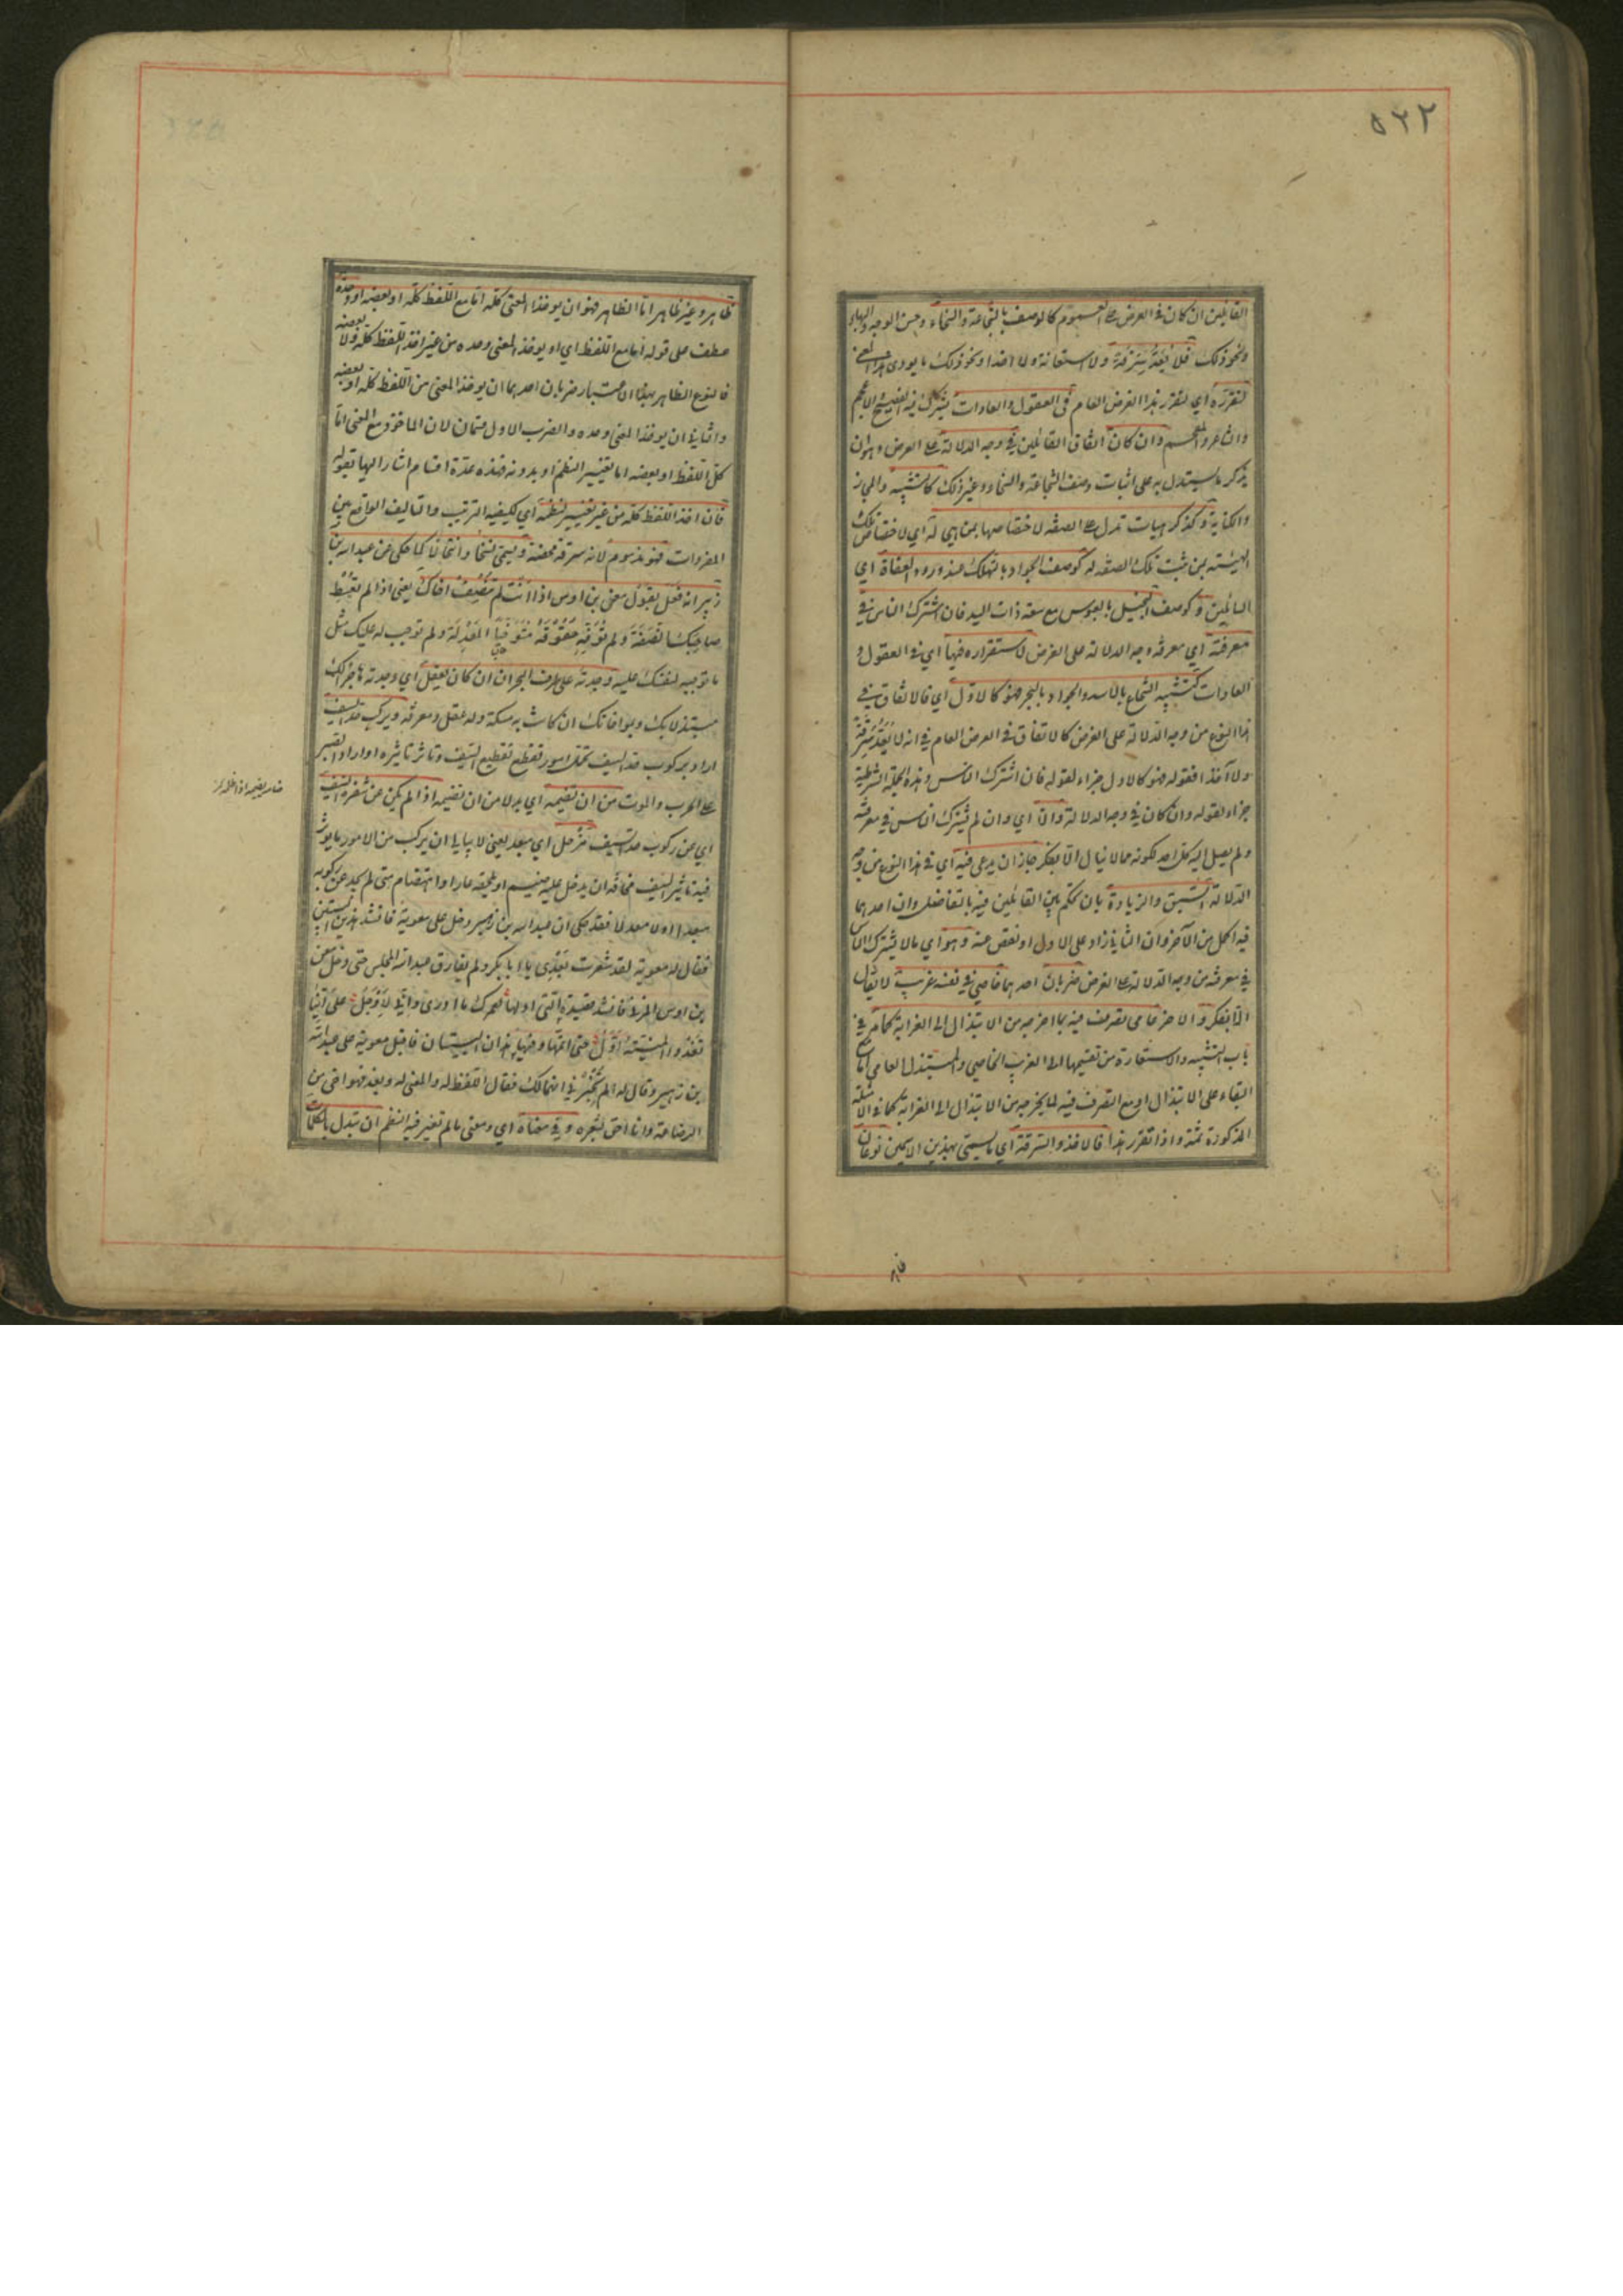 ٥٣٢
القائلين ان كان فى الغرض على العموم كالوصف بالشجاعة والسخاء وحسن الوجه والبهاء
ونحو ذلك فلا يعد سرقة ولا استعانة ولا اخذا ونحو ذلك مما يودى هذا المعنى
لتقرره اي لتقرر هذا الغرض العام فى العقول والعادات يشترك فيه الفصيح والاعجم
والشاعر والمفحم وان كان اتفاق القائلين فى وجه الدلالة على الغرض وهو ان
يذكر ما يستدل به على اثبات وصف الشجاعة والسخاء وغير ذلك كالتشبيه والمجاز
والكناية وكذكر هيات تدل على الصفة لاختصاصها بمن هي له اي لاختصاص تلك
الهيئة بمن ثبت تلك الصفة له كوصف الجواد بالتهلل عند ورود العفاة اي
السائلين وكوصف البخيل بالعبوس مع سعة ذات اليد فان اشترك الناس فى
معرفته اي معرفة وجه الدلالة على الغرض لاستقراره فيها اي فى العقول و
العادات كتشبيه الشجاع بالاسد والجواد بالبحر فهو كالاول اي فالاتفاق فى
هذا النوع من وجه الدلالة على الغرض كالاتفاق فى الغرض العام فى انه لا يعد سرقة
ولا اخذا فقوله فهو كالاول جزاء لقوله فان اشترك الناس وهذه الجملة الشرطية
جزاء لقوله وان كان فى وجه الدلالة والا اي وان لم يشترك الناس فى معرفته
ولم يصل اليه كل احد لكونه مما لا ينال الا بفكر جاز ان يدعى فيه اي فى هذا النوع من وجه
الدلالة السبق والزيادة بان يحكم بين القائلين فيه بالتفاضل وان احدهما
فيه اكمل من الآخر وان الثاني زاد على الاول او نقص عنه وهو اي ما لا يشترك الناس
فى معرفته من وجه الدلالة على الغرض ضربان احدهما خاصي فى نفسه غريب لا ينال
الا بفكر والاخر عامي تصرف فيه بما اخرجه من الابتذال الى الغرابة كما مر فى
باب التشبيه والاستعارة من تقسيمهما الى الغريب الخاصي والمبتذل العامي اما مع
البقاء على الابتذال او مع التصرف فيه لما يخرجه من الابتذال الى الغرابة كما فى الامثلة
المذكورة ثمة واذا تقرر هذا فالاخذ والسرقة اي ما يسمى بهذين الاسمين نوعان
ظاهر وغير ظاهر اما الظاهر فهو ان يوخذ المعنى كله اما مع اللفظ كله او بعضه او وحده
عطف على قوله اما مع اللفظ اي او يوخذ المعنى وحده من غير اخذ اللفظ كله ولا بعضه
فالنوع الظاهر بهذا الاعتبار ضربان احدهما ان يوخذ المعنى مع اللفظ كله او بعضه
والثاني ان يوخذ المعنى وحده والضرب الاول قسمان لان الماخوذ مع المعنى اما
كل اللفظ او بعضه اما بتغيير النظم او بدونه فهذه عدة اقسام اشار اليها بقوله
فان اخذ اللفظ كله من غير تغيير لنظمه اي لكيفية الترتيب والتاليف الواقع بين
المفردات فهو مذموم لانه سرقة محضة ويسمى نسخا وانتحالا كما حكى عن عبد الله بن
زبير انه فعل بقول معن بن اوس اذا انت لم تنصف اخاك يعنى اذا لم تعط
صاحبك النصفة ولم توفه حقوقه متوخيا المعدلة ولم توجب له عليك مثل
ما توجبه لنفسك عليه وجدته على طرف الهجران ان كان يعقل اي وجدته هاجرا لك
مستبدلا بك وبمواخاتك ان كانت به مسكة وله عقل ومعرفة ويركب حد السيف
اراد بركوب حد السيف تحمل امور تقطع تقطيع السيف وتاثر تاثيره او اراد الصبر
على الحرب والموت من ان تضيمه اي بدلا من ان تضيمه اذا لم يكن عن شفرة السيف
اي عن ركوب حد السيف مزحل اي مبعد يعنى لا يبالى ان يركب من الامور ما يوثر
فيه تاثير السيف مخافة ان يدخل عليه ضيم او يلحقه عار او اهتضام متى لم يجد عن ركوبه
مبعدا ومعدلا فقد حكى ان عبد الله بن زبير دخل على معوية فانشد هذين البيتين
فقال له معوية لقد شعرت بعدى يا ابا بكر ولم يفارق عبد الله المجلس حتى دخل معن
بن اوس المزني فانشد قصيدته التى اولها لعمرك ما ادرى واني لاوجل على اينا
تغدو المنية اول حتى اتمها وفيها هذان البيتان فاقبل معوية على عبد الله
بن زبير وقال له الم تخبرني انهما لك فقال اللفظ له والمعنى له وبعد فهو اخى من
الرضاعة وانا احق بشعره وفى معناه اي ومعنى ما لم تغير فيه النظم ان تبدل بالكلمات